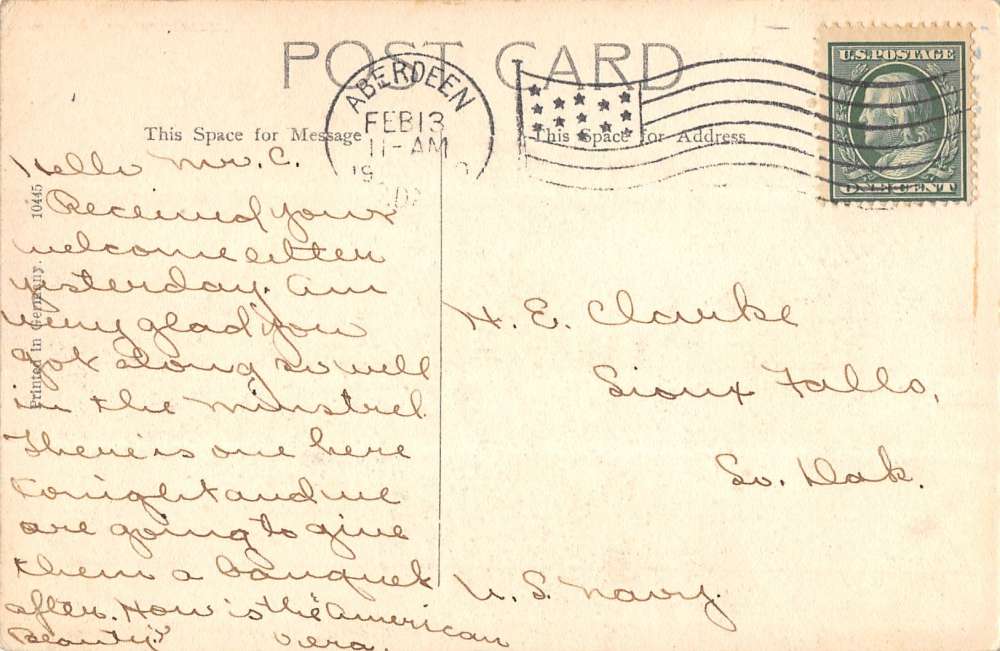 POST CARD
ABERDEEN
FEB 13
11-AM
19
U.S. POSTAGE
ONE CENT
This Space for Message
This Space for Address
Printed in Germany. 10445
Hello Mr. C.
Received your
welcome letter
yesterday. Am
very glad you
got along so well
in the minstrel
There is one here
tonight and we
are going to give
them a banquet
after. How is the "American
Beauty"?
Vera.
H. E. Clarke
Sioux Falls,
So. Dak.
U. S. Navy.